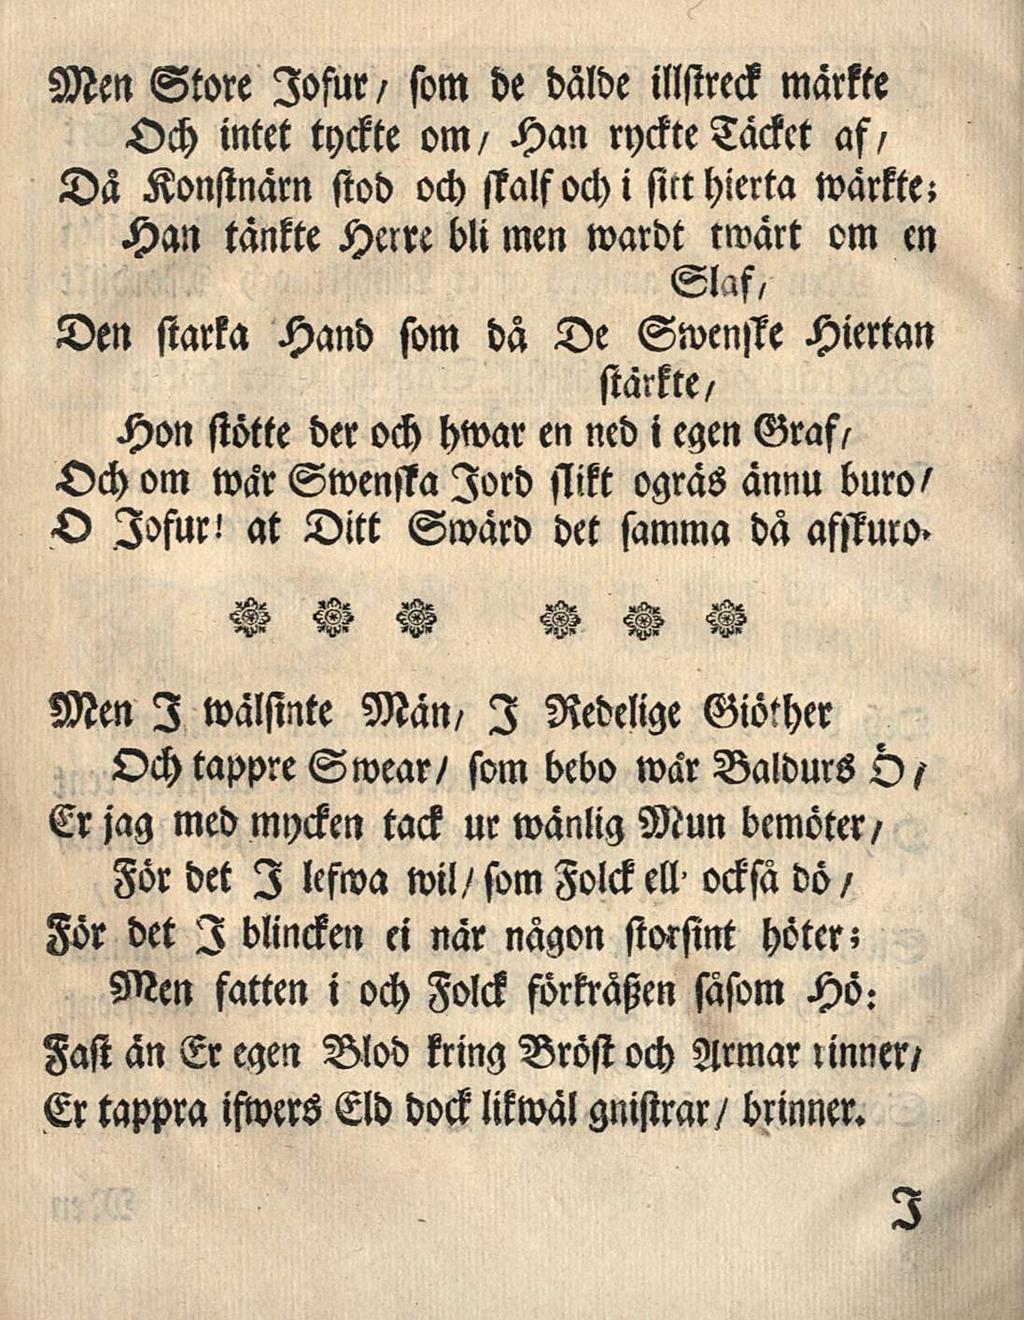 Men Store Jofur / som de dålde illstreck märkte
Och intet tyckte om / Han ryckte Täcket af /
Då Konstnärn stod och skalf och i sitt hierta wärkte;
Han tänkte Herre bli men wardt twärt om en
Slaf /
Den starka Hand som då De Swenske Hiertan
stärkte /
Hon stötte der och hwar en ned i egen Graf /
Och om wår Swenska Jord slikt ogräs ännu buro /
O Jofur! at Ditt Swärd det samma då afskuro.
Men J wälsinte Män / J Redelige Giöther
Och tappre Swear / som bebo wår Baldurs Ö /
Er jag med mycken tack ur wänlig Mun bemöter /
För det J lefwa wil / som Folck ell' också dö /
För det J blincken ei när någon storsint höter;
Men fatten i och Folck förkråßen såsom Hö:
Fast än Er egen Blod kring Bröst och Armar rinner /
Er tappra ifwers Eld dock likwäl gnistrar / brinner.
J